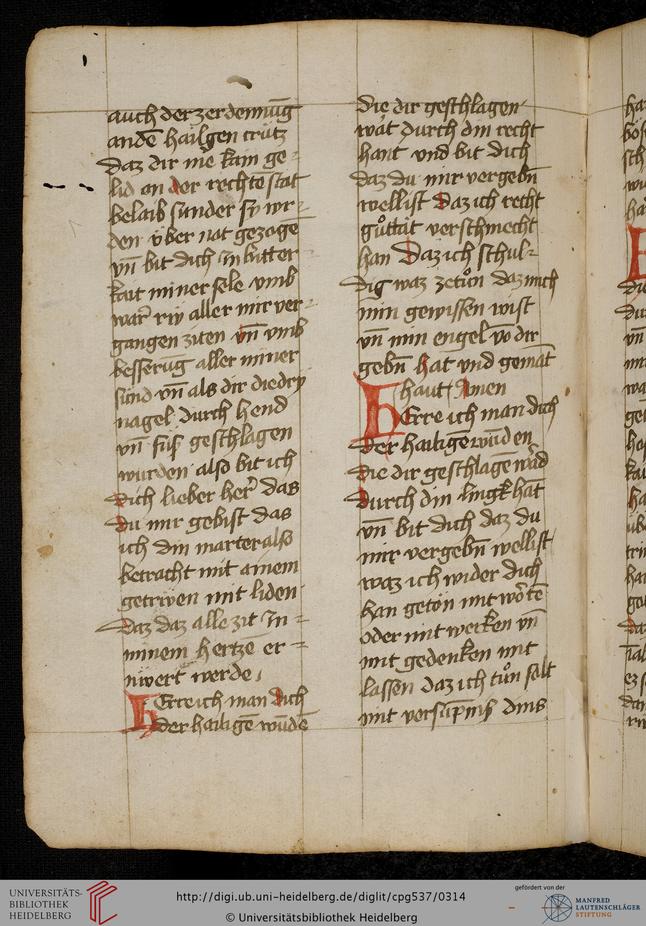 auch der zerdennūg
andē hailgen crütz
daz dir nie kain ge⸗
lid an der rechtē stat
belaib sunder sy wr⸗
den v̊ber nat gezogē
vn̄ bit dich in bitter
kait miner sele vmb
war̄ riw aller mir ver⸗
gangen ziten vn̄ vmb
besserūg aller miner
sünd vn̄ als dir die dry
nagel durch hend
vn̄ füs geschlagen
wurden also bit ich
dich lieber her̄ das
du mir gebist das
ich din marter also
betracht mit ainem
getrwen mit liden
daz daz alle zit in⸗
minem hertzē er⸗
niwert werde
HErre ich man dich
der hailigē wūdē
die dir geschlagen
wāt durch din recht
hant vnd bit dich
daz du mir vergebn̄
wellist daz ich recht
gůttat verschmecht
han Daz ich schul⸗
dig waz zetůn daz mich
min gewissen wist
vn̄ min engel vō dir
gebn̄ hat vnd gemāt
haut Amen
HErre ich man dich
der hailigē wūden
die dir geschlagē wōd
durch din lingk hāt
vn̄ bit dich daz du
mir vergebn̄ wellist
waz ich wider dich
han getōn mit wōtē
oder mit wercken vn̄
mit gedenken mit
lassen daz ich tůn solt
mit versūpnis dins
UNIVERSITÄTS-
BIBLIOTHEK
HEIDELBERG
http://digi.ub.uni-heidelberg.de/diglit/cpg537/0314
© Universitätsbibliothek Heidelberg
gefördert von der
MANFRED
LAUTENSCHLÄGER
STIFTUNG